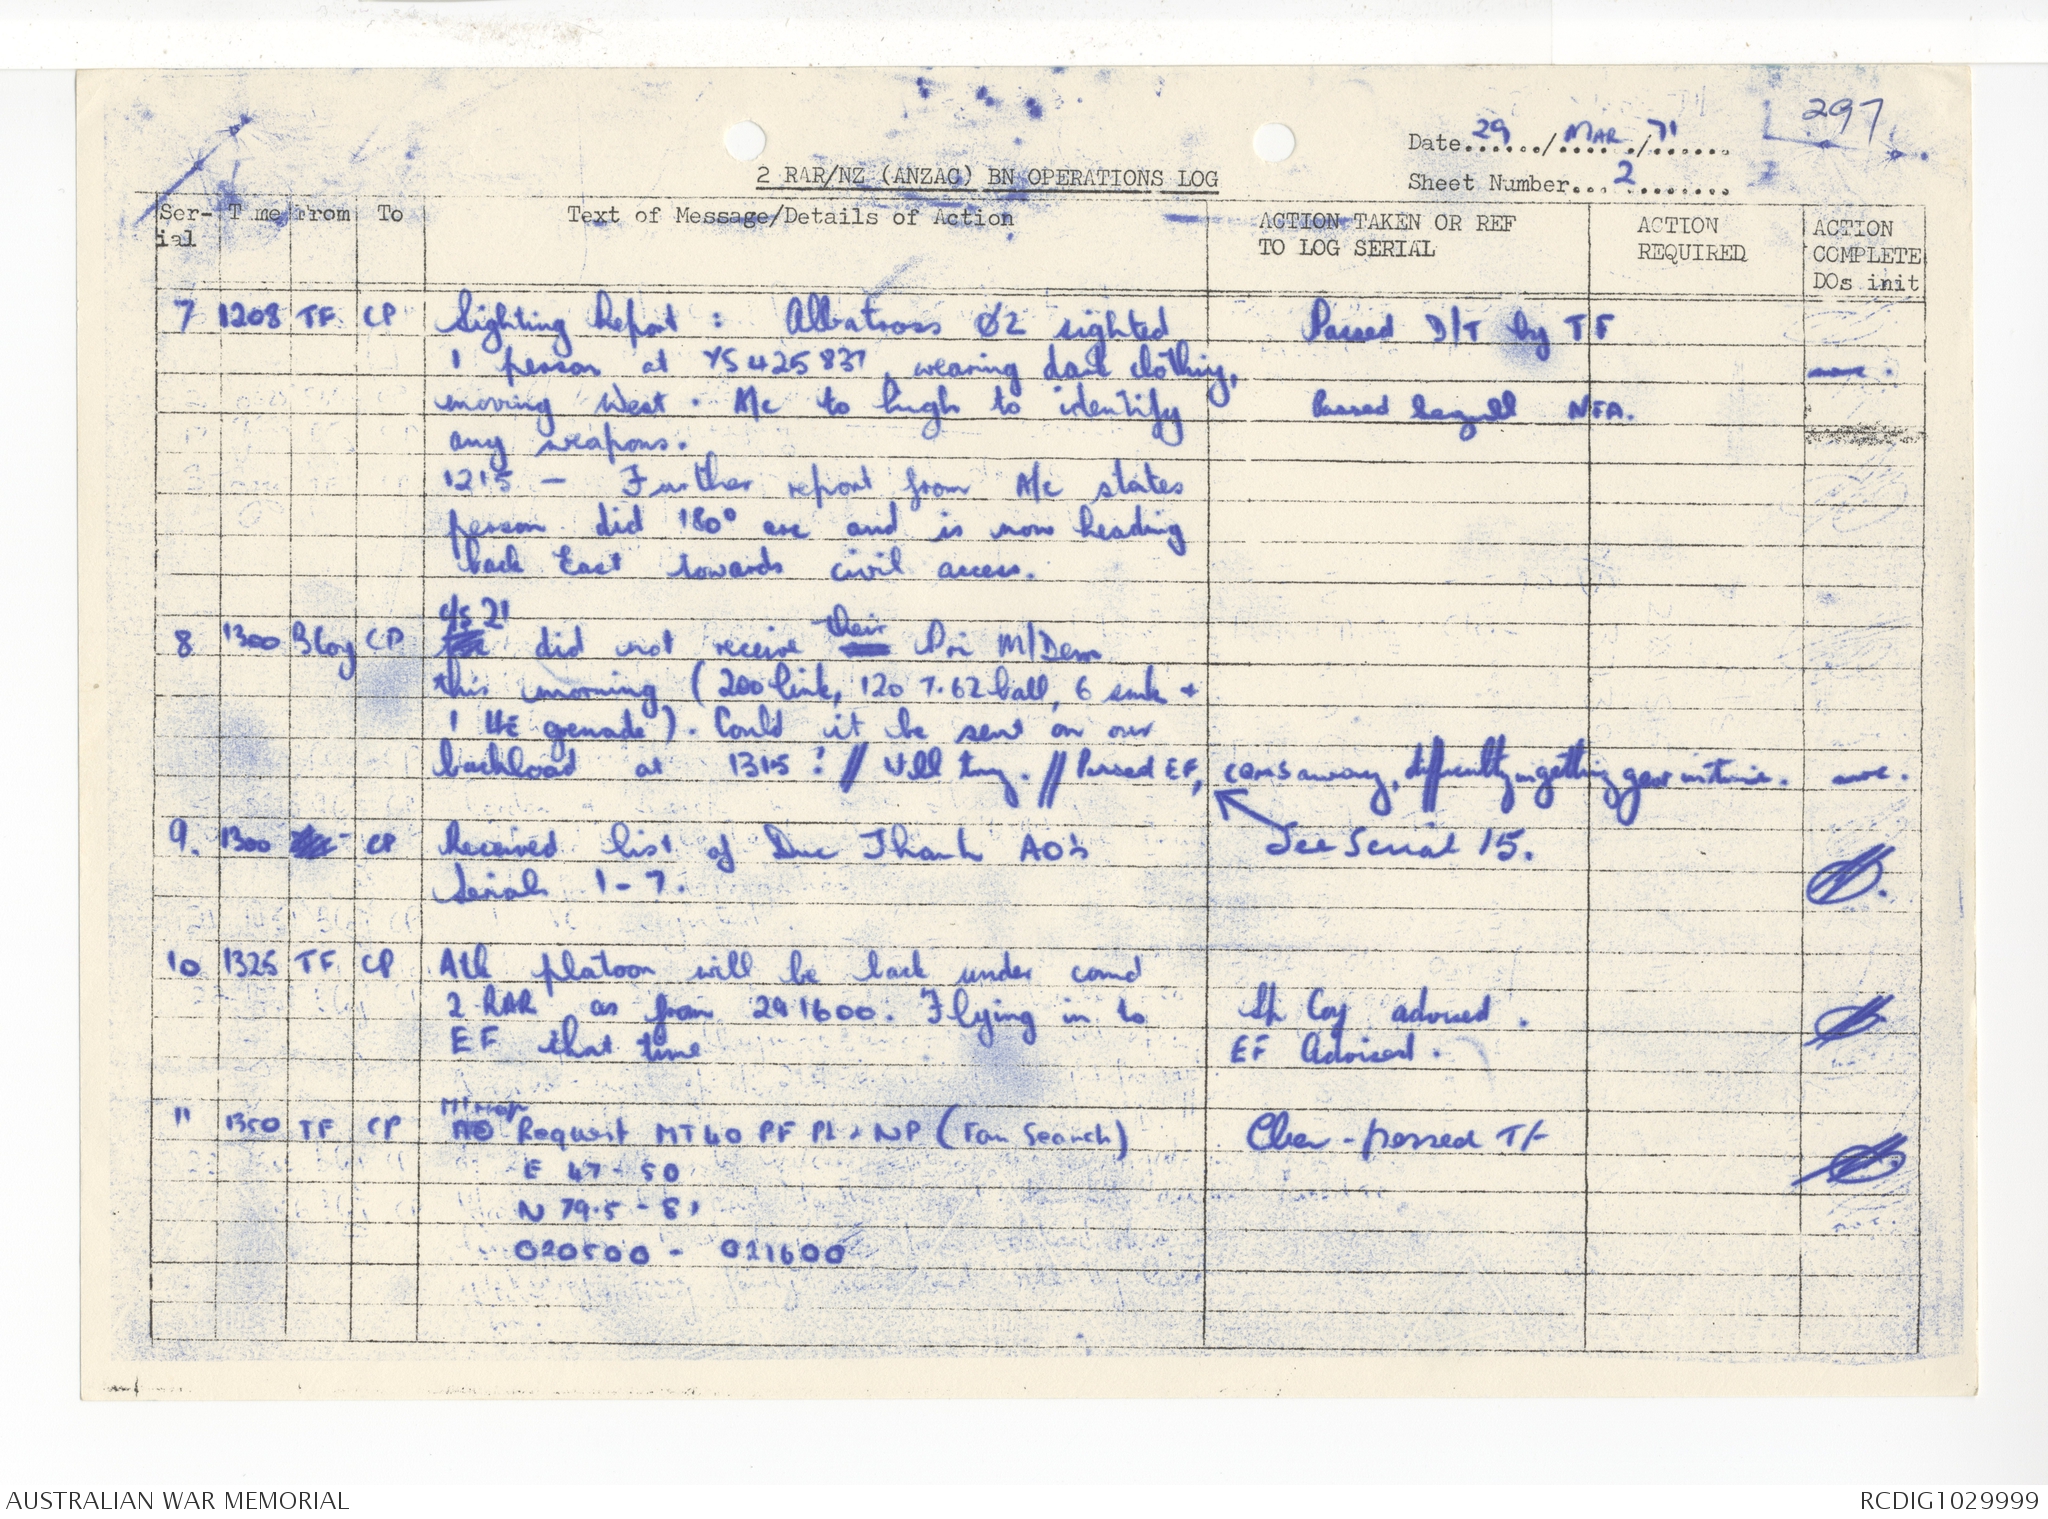 297
Date 29 / MAR / 71
2 RAR/NZ (ANZAC) BN OPERATIONS LOG
Sheet Number... 2
Ser-ial Time From To Text of Message/Details of Action ACTION TAKEN OR REF TO LOG SERIAL ACTION REQUIRED ACTION COMPLETE DOs init
7 1208 TF CP Sighting Report : Albatross Ø2 sighted Passed D/T by TF
1 person at YS 425 837, wearing dark clothing,
moving West. A/c to high to identify Passed NFA.
any weapons.
1215 - Further report from A/c states
person did 180° arc and is now heading
back East towards civil access.
c/s 21
8 1300 B Coy CP did not receive their Pri M/Dem
this morning (200 link, 120 7.62 ball, 6 smk +
1 HE grenade). Could it be sent on our
backload at 1315? // Will try. // Passed EF, difficulty in getting gear in time.
9. 1300 CP Received list of Duc Thanh AO's See Serial 15.
Serials 1-7.
10 1325 TF CP Atk platoon will be back under comd
2 RAR as from 291600. Flying in to Sp Coy advised.
EF that time EF Advised.
11 1350 TF CP Request MT 40 PF PL 2 NP (Tan Search) Clear - passed TF
E 47 - 50
N 79.5 - 81
020500 - 021600
AUSTRALIAN WAR MEMORIAL
RCDIG1029999